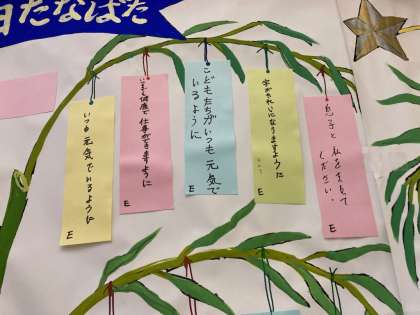 日たなばた
いつも元気でいるように
E
いつも健康で仕事ができますように
E
こどもたちがいつも元気で
いるように
E
字がきれいになりますように
E
息子と私をまもって
ください。
E